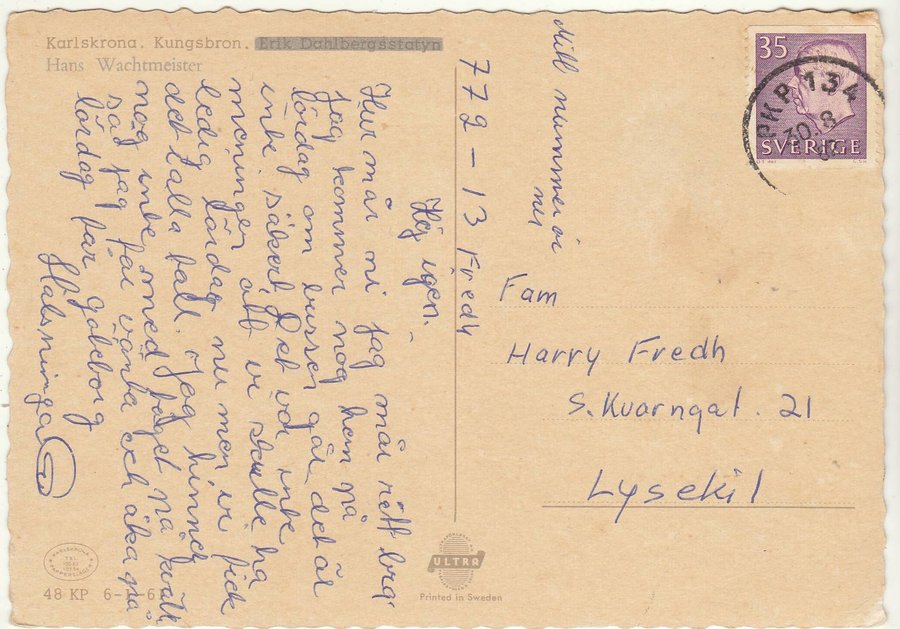 Karlskrona. Kungsbron. Erik Dahlbergsstatyn
Hans Wachtmeister
Hej igen.
Hur mår ni jag mår rött bra
jag kommer nog hem på
lördag om bussen går det är
inte säkert. Det var inte
meningen att vi skulle ha
ledig lördag nu men vi fick
det i alla fall. Jag hinner
nog inte med tåget på kväll
så jag får vänta och åka på
lördag far göteborg
Hälsningar
Mitt nummer är
nu
772-13 Fredh
35
SVERIGE
PKP 134
30.8
Fam
Harry Fredh
S. Kvarngat. 21
Lysekil
KARLSKRONA
ULTRA
Printed in Sweden
48 KP 6-1-6